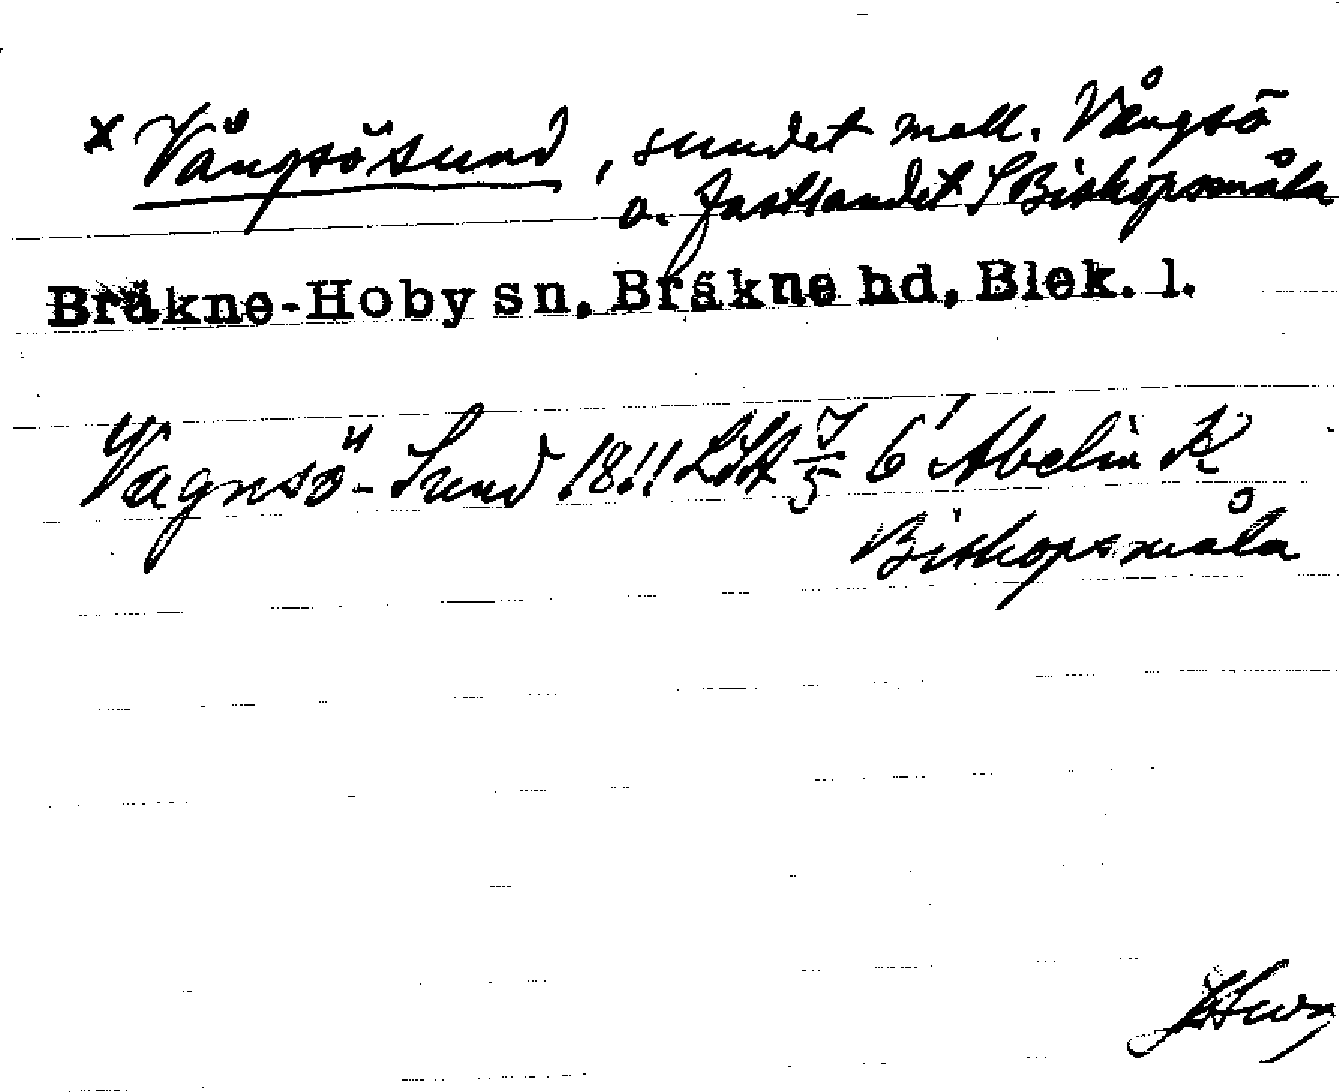 x Vångsösund, sundet mell. Vångsö
o. fastlandet S Biskopsmåla
Bräkne-Hoby sn, Bräkne hd, Blek. l.
Vagnsö-Sund 1811 LSA 7/5 6 Abelin K
Biskopsmåla